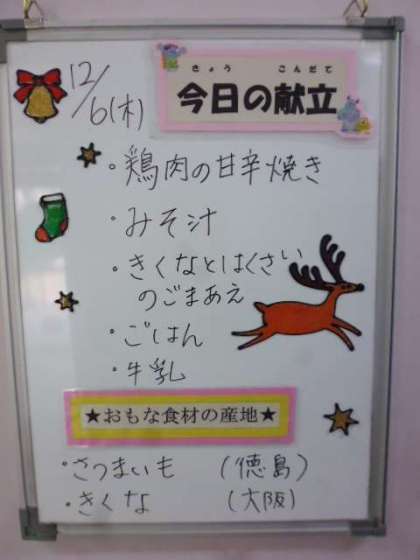 12/6(木)
きょう こんだて
今日の献立
・鶏肉の甘辛焼き
・みそ汁
・きくなとはくさい
のごまあえ
・ごはん
・牛乳
★おもな食材の産地★
・さつまいも (徳島)
・きくな (大阪)